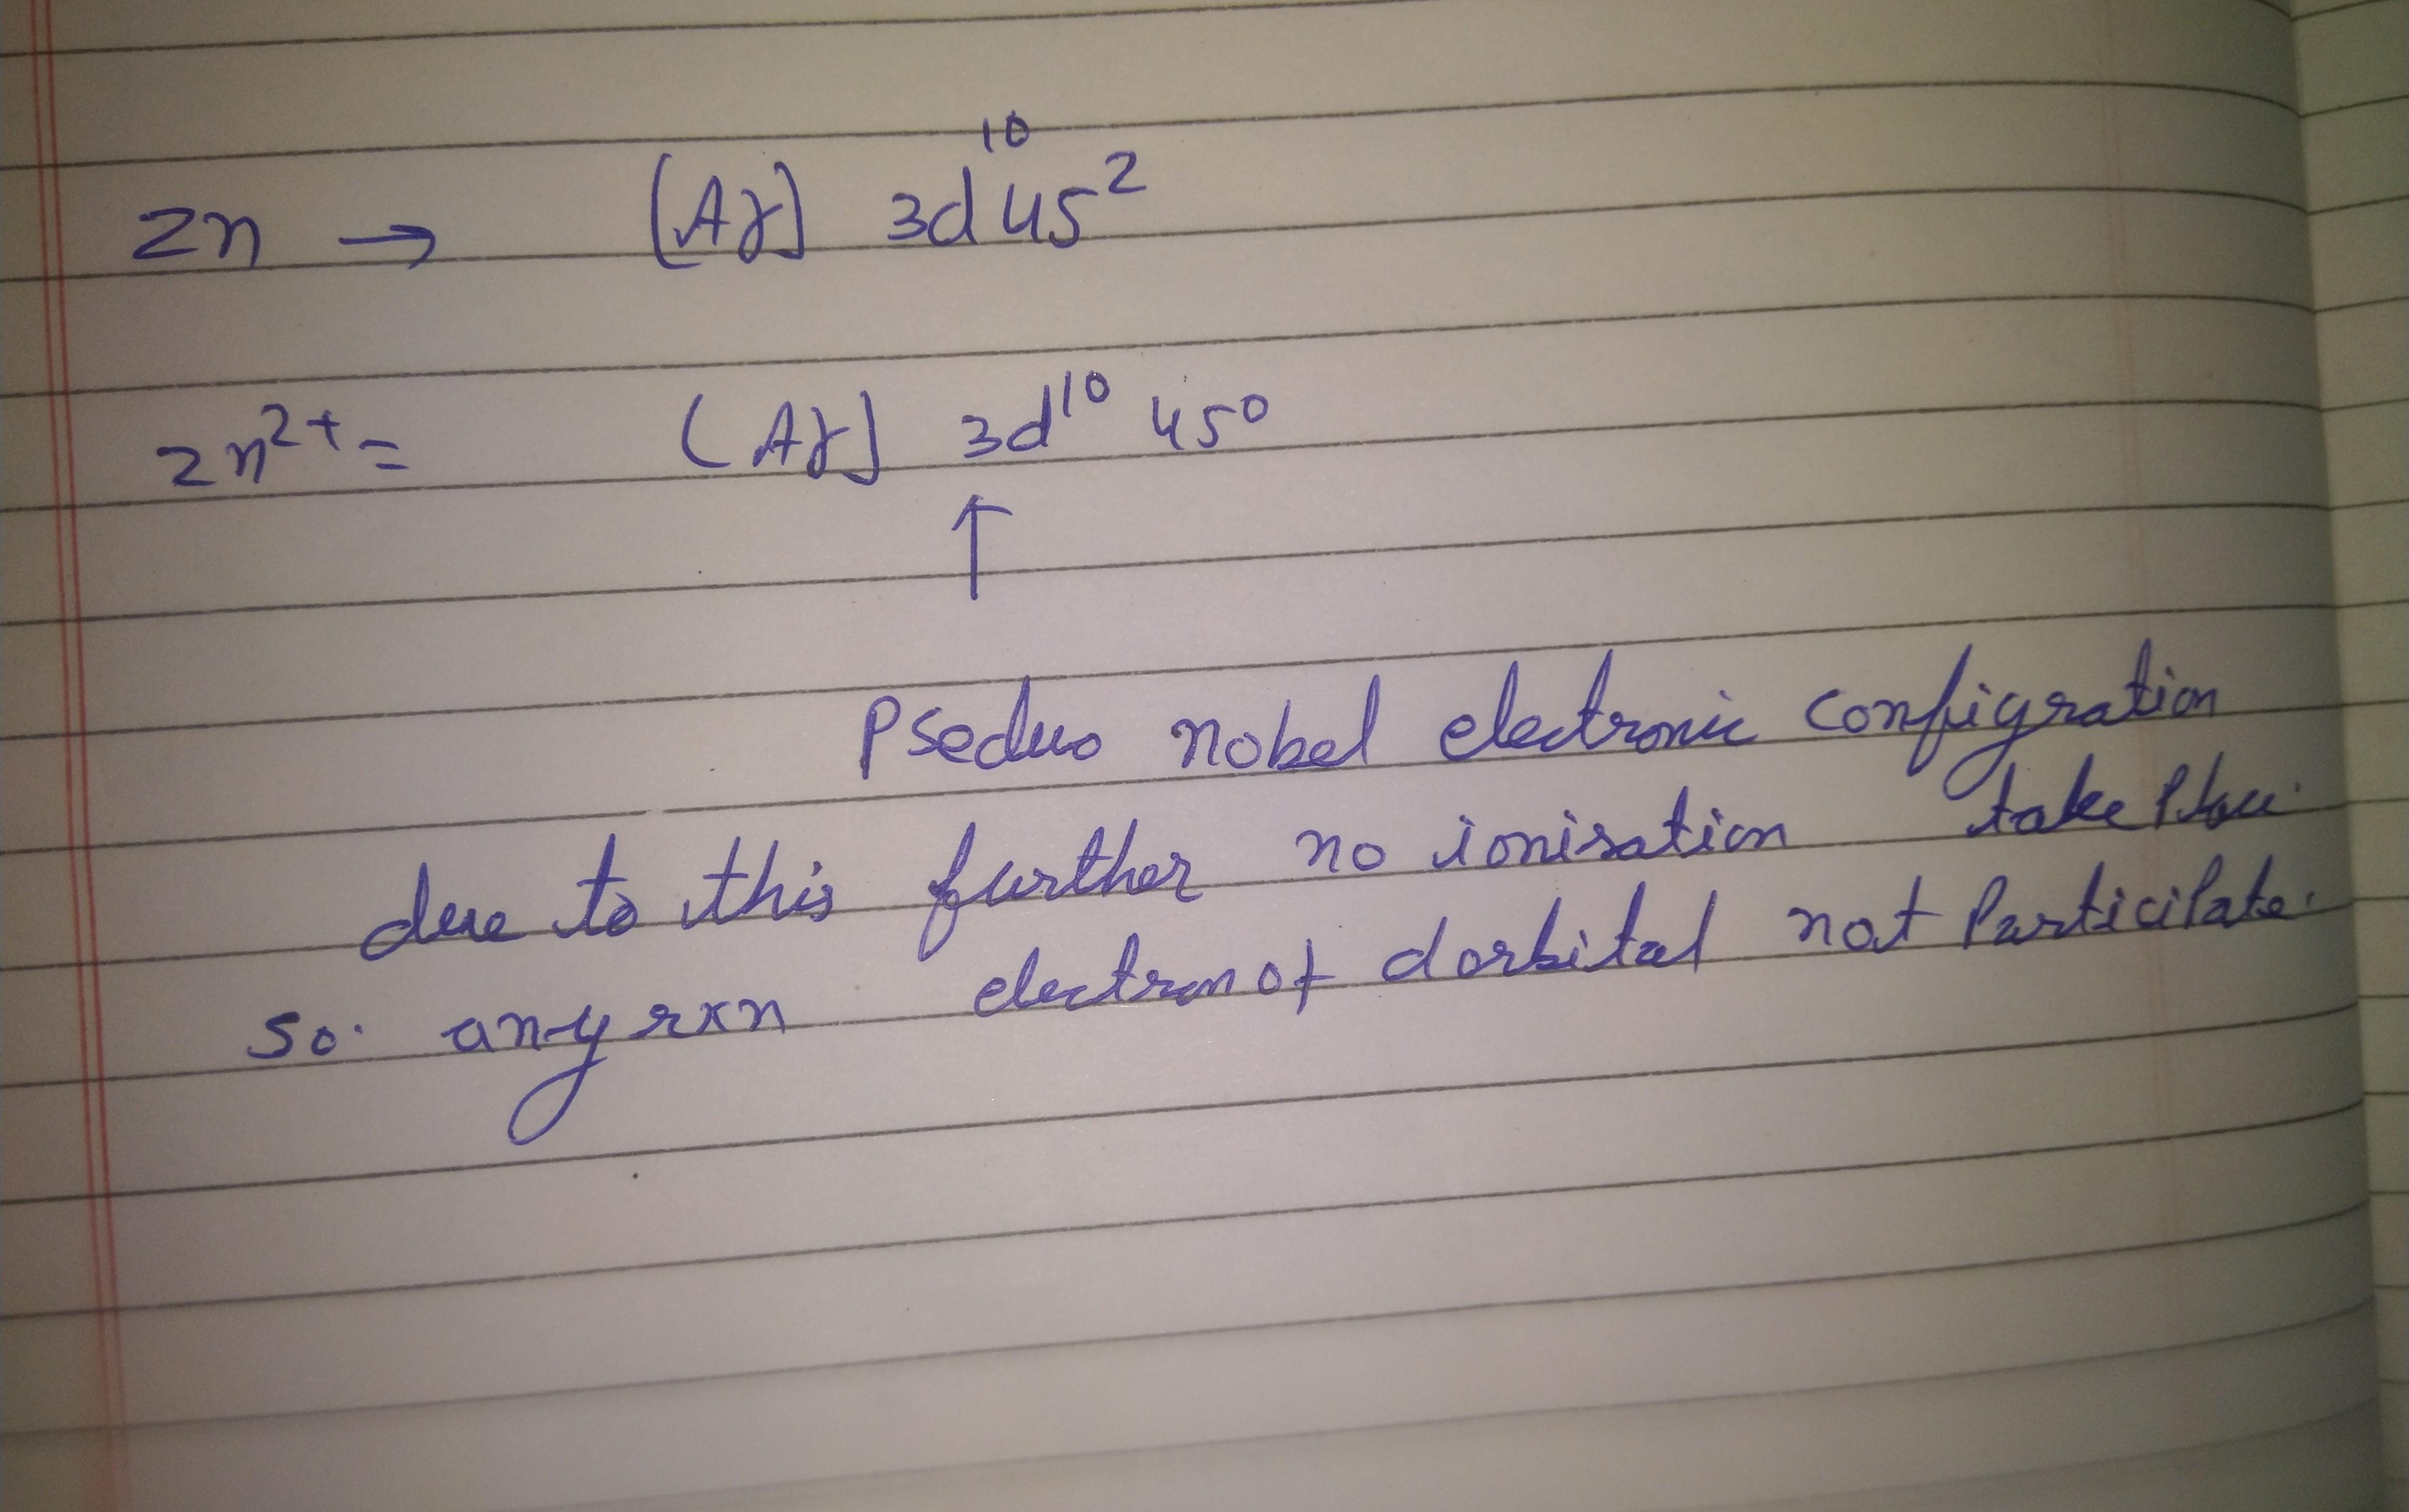 Zn → [Ar] 3d¹⁰ 4s²
Zn²⁺ = (Ar] 3d¹⁰ 4s⁰
↑
Pseduo nobel electronic configration
due to this further no ionisation take place.
so. any rxn electron of d orbital not Participate.